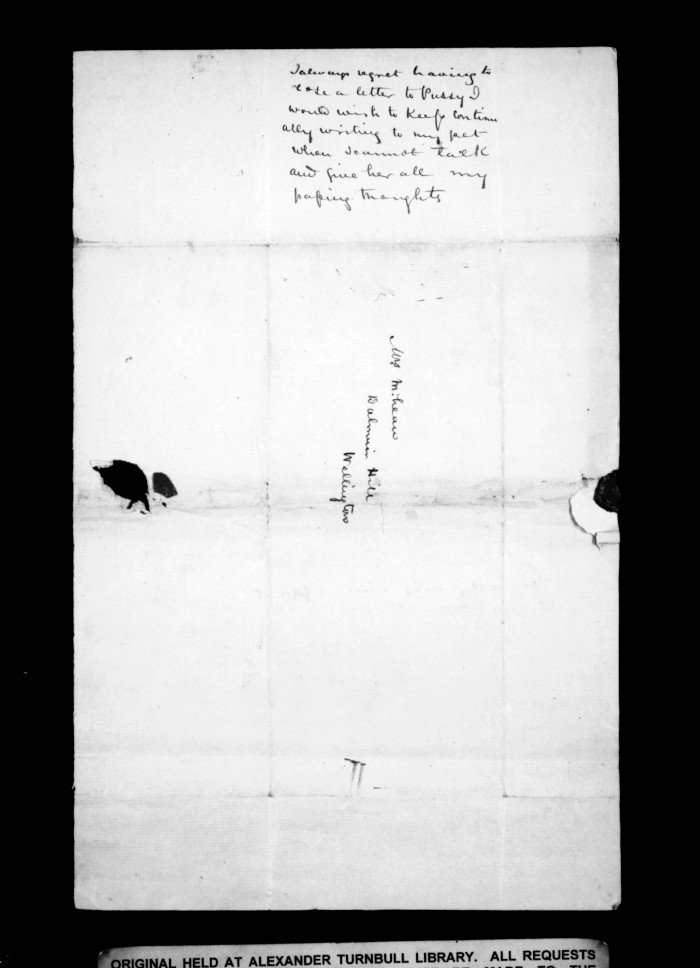 I always regret having to
close a letter to Pussy I
would wish to keep continu
ally writing to my pet
when I cannot talk
and give her all my
passing thoughts
Mrs McLean
Dalmuir Hill
Wellington
ORIGINAL HELD AT ALEXANDER TURNBULL LIBRARY. ALL REQUESTS
MADE TO THE